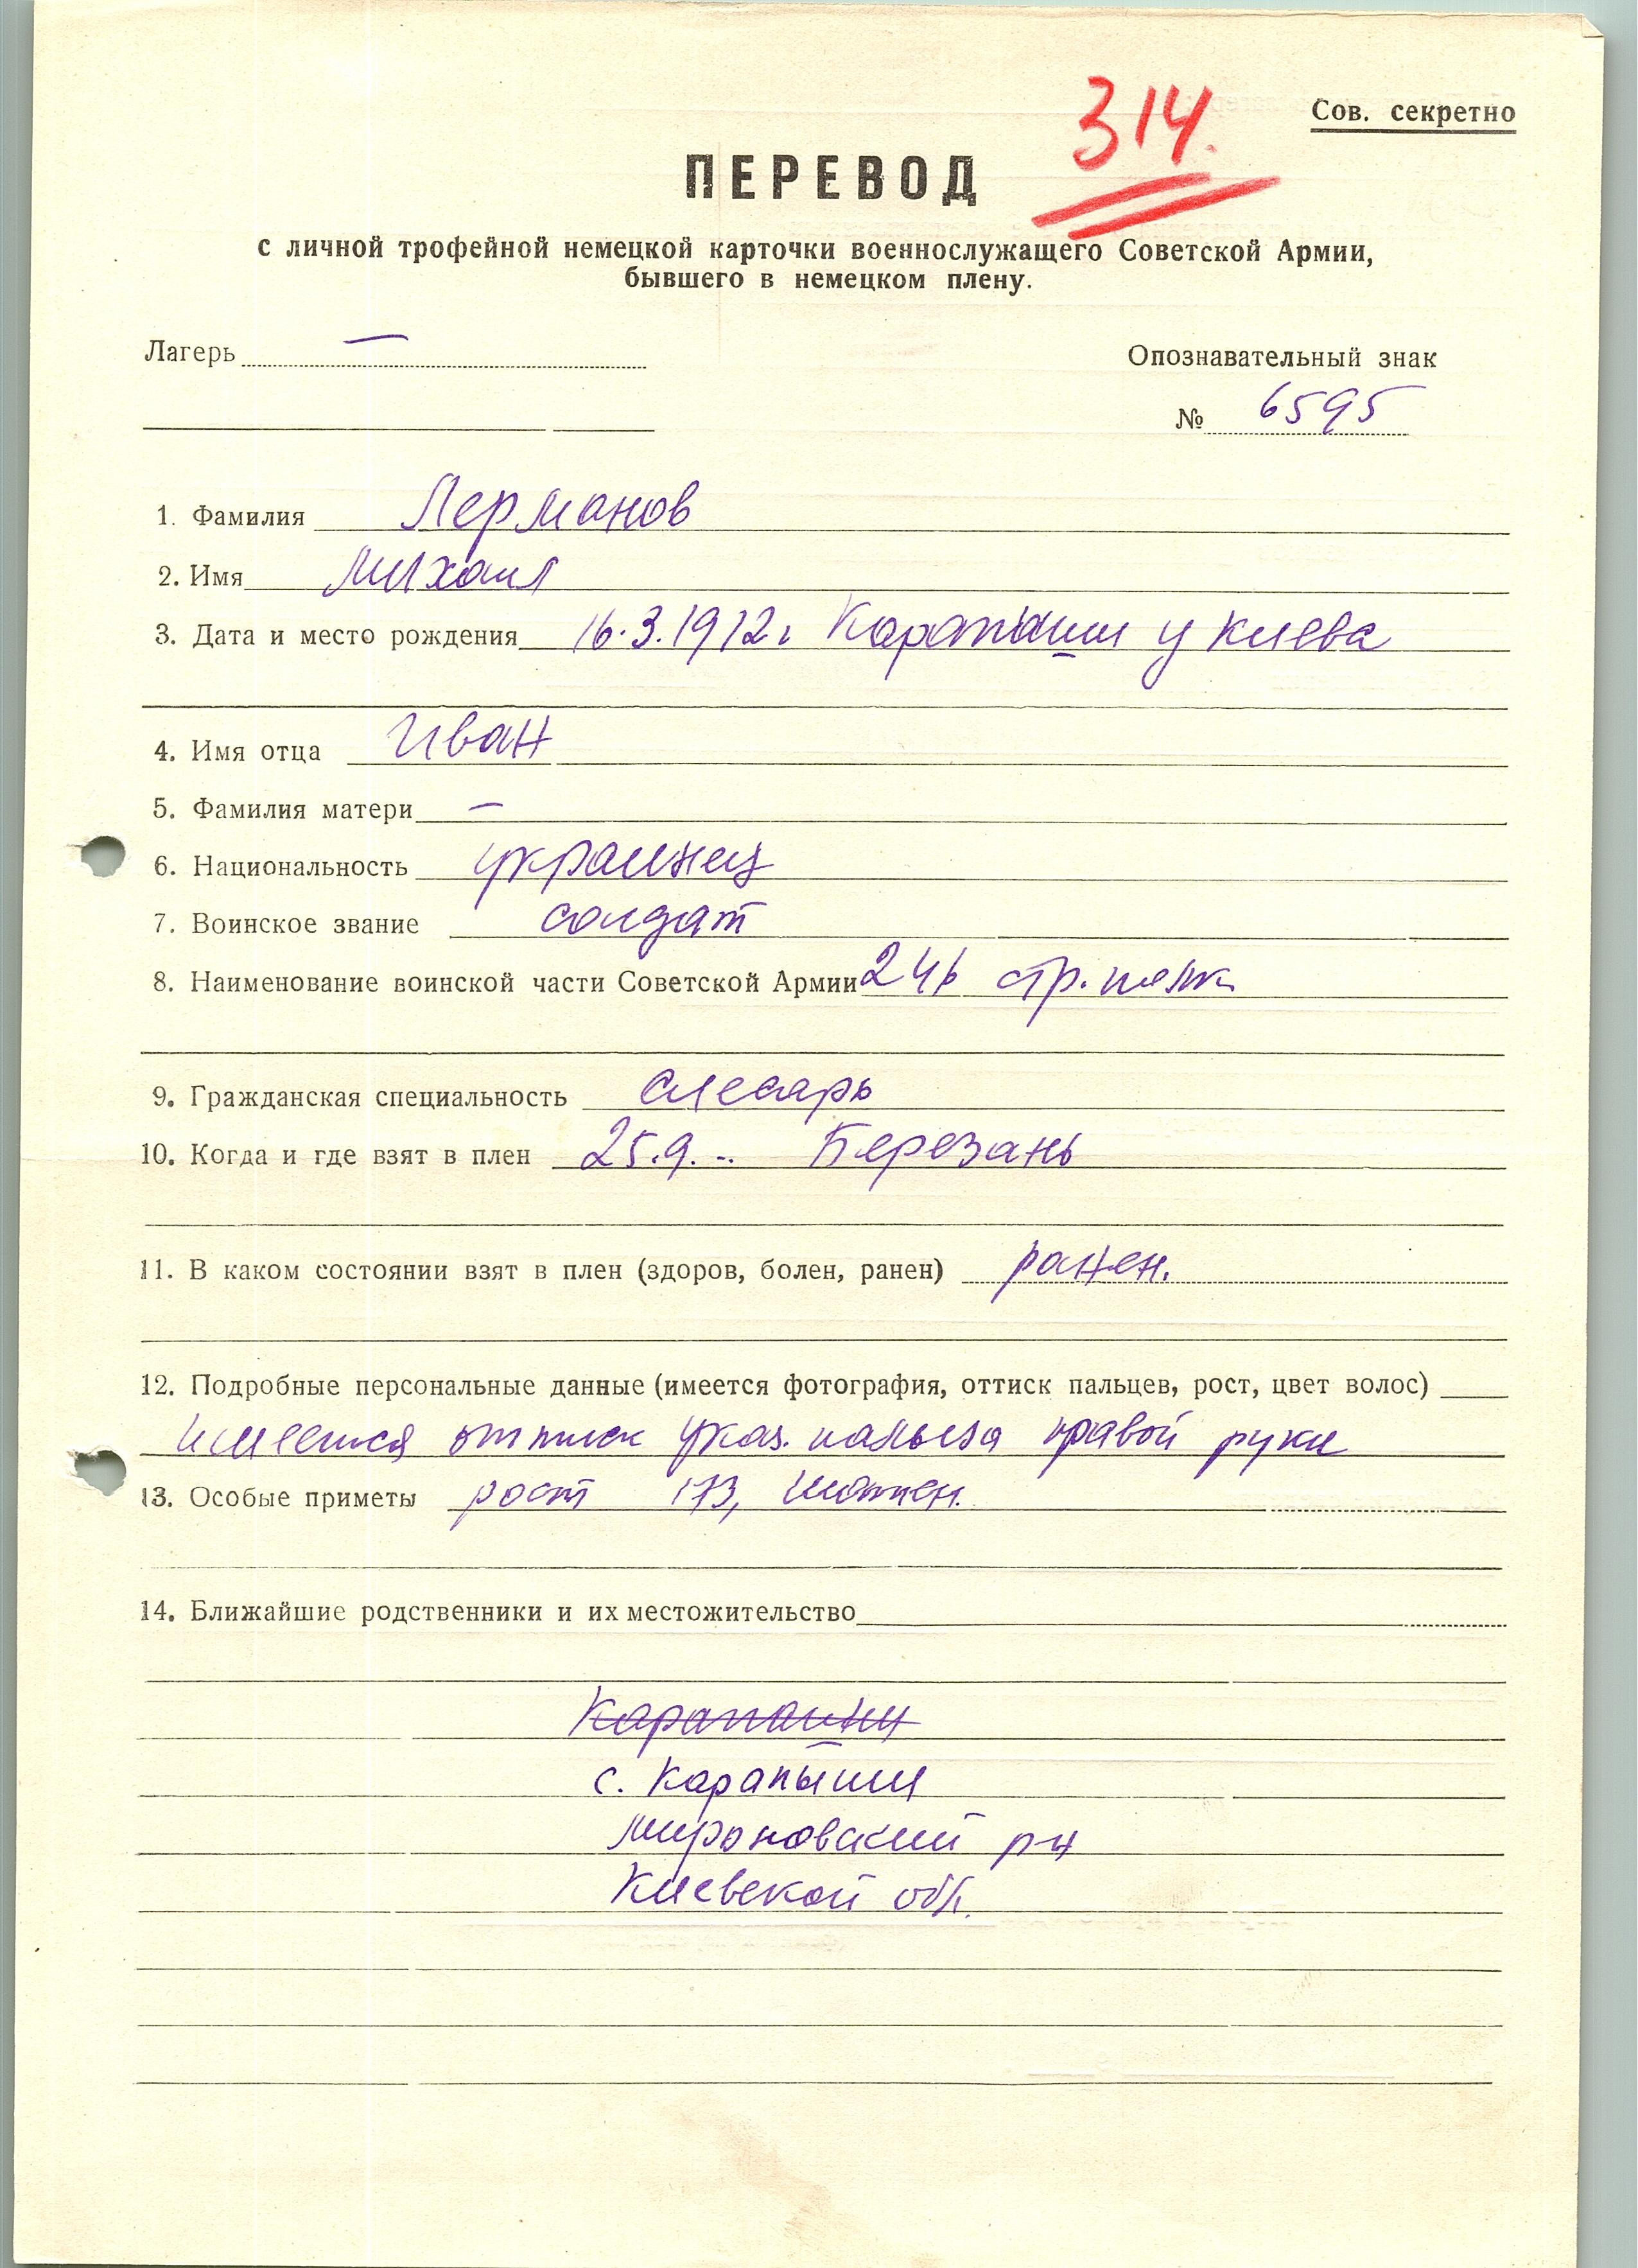 314.
Сов. секретно
ПЕРЕВОД
с личной трофейной немецкой карточки военнослужащего Советской Армии,
бывшего в немецком плену.
Лагерь —
Опознавательный знак
№ 6595
1. Фамилия Лерманов
2. Имя Михаил
3. Дата и место рождения 16.3.1912г Карапыши у Киева
4. Имя отца Иван
5. Фамилия матери —
6. Национальность украинец
7. Воинское звание солдат
8. Наименование воинской части Советской Армии 246 стр. полк
9. Гражданская специальность слесарь
10. Когда и где взят в плен 25.9. .. Березань
11. В каком состоянии взят в плен (здоров, болен, ранен) ранен.
12. Подробные персональные данные (имеется фотография, оттиск пальцев, рост, цвет волос)
имеется оттиск указ. пальца правой руки
13. Особые приметы рост 173, шатен.
14. Ближайшие родственники и их местожительство
с. Карапыши
Мироновский р-н
Киевской обл.